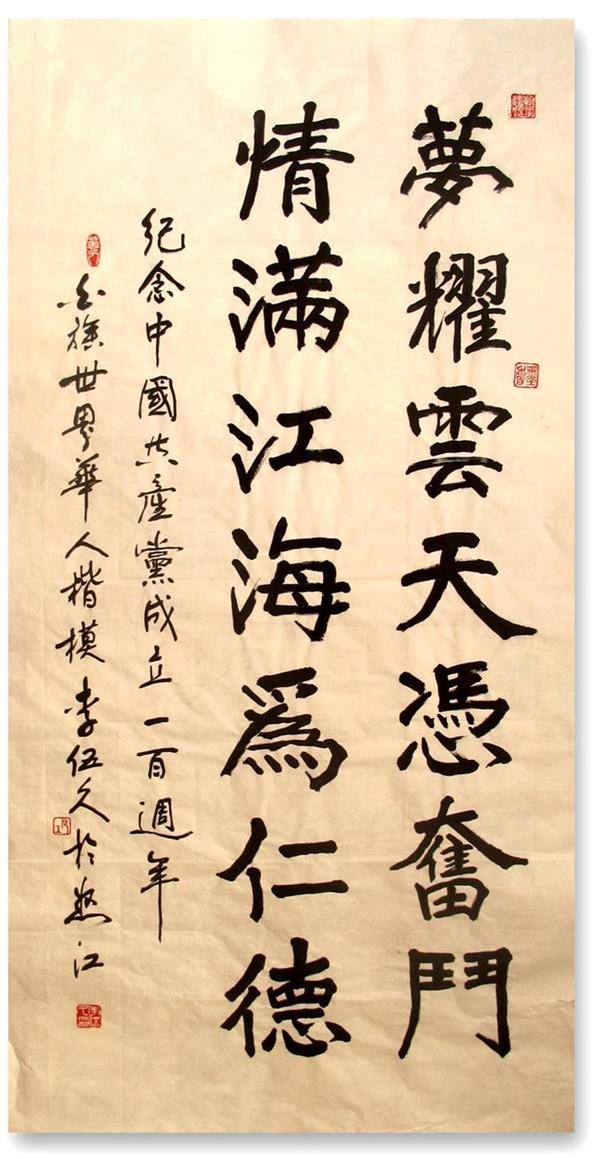 夢耀雲天憑奮鬥
情滿江海為仁德
紀念中國共產黨成立一百週年
白族世界華人楷模李伍久於怒江